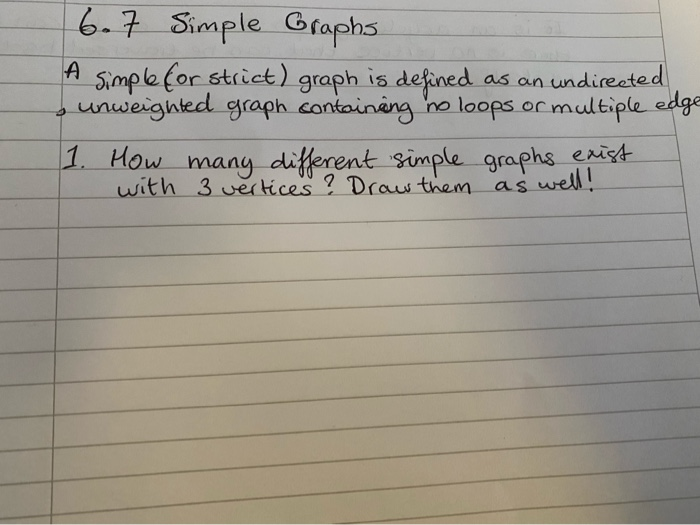 6.7 Simple Graphs
A Simple (or strict) graph is defined as an undirected
, unweighted graph containing no loops or multiple edge
1. How many different simple graphs exist
with 3 vertices? Draw them as well!